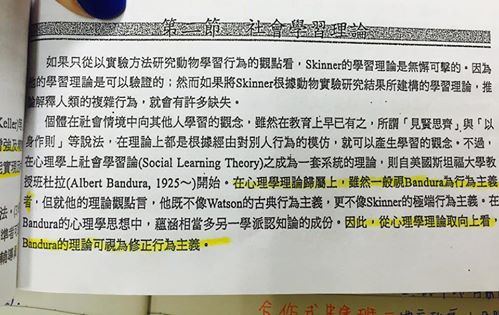 第二節 社會學習理論
如果只從以實驗方法研究動物學習行為的觀點看，Skinner的學習理論是無懈可擊的。因為
他的學習理論是可以驗證的；然而如果將Skinner根據動物實驗研究結果所建構的學習理論，推
論解釋人類的複雜行為，就會有許多缺失。
個體在社會情境中向其他人學習的觀念，雖然在教育上早已有之，所謂「見賢思齊」與「以
身作則」等說法，在理論上都是根據經由對別人行為的模仿，就可以產生學習的觀念。不過，
在心理學上社會學習論(Social Learning Theory)之成為一套系統的理論，則自美國斯坦福大學教
授班杜拉(Albert Bandura, 1925～)開始。在心理學理論歸屬上，雖然一般視Bandura為行為主義
者，但就他的理論觀點言，他既不像Watson的古典行為主義，更不像Skinner的極端行為主義。在
Bandura的心理學思想中，蘊涵相當多另一學派認知論的成份。因此，從心理學理論取向上看，
Bandura的理論可視為修正行為主義。